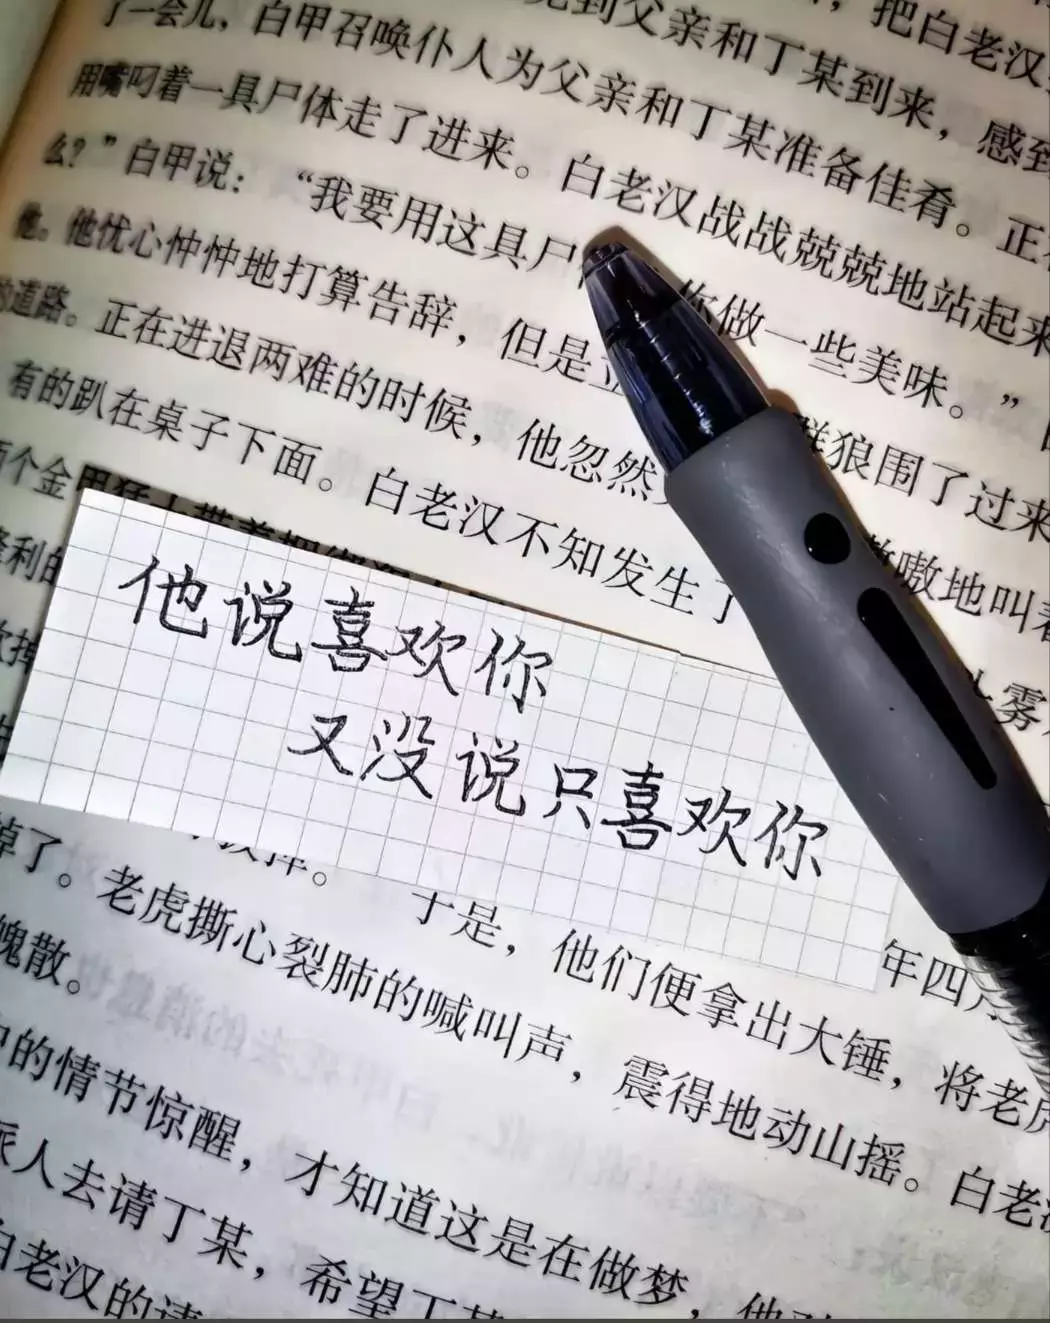 到父亲和丁某到来，感到
了一会儿，白甲召唤仆人为父亲和丁某准备佳肴。正在
用嘴叼着一具尸体走了进来。白老汉战战兢兢地站起来
么？”白甲说：“我要用这具尸 你做一些美味。”
他。他忧心忡忡地打算告辞，但是 群狼围了过来
的道路。正在进退两难的时候，他忽然 嗷地叫着
有的趴在桌子下面。白老汉不知发生了 
两个金甲
他说喜欢你
又没说只喜欢你
掉了。 于是，他们便拿出大锤，将老虎
老虎撕心裂肺的喊叫声，震得地动山摇。白老汉
魄散。
中的情节惊醒，才知道这是在做梦，他
派人去请丁某，希望丁某
白老汉的请
年四月